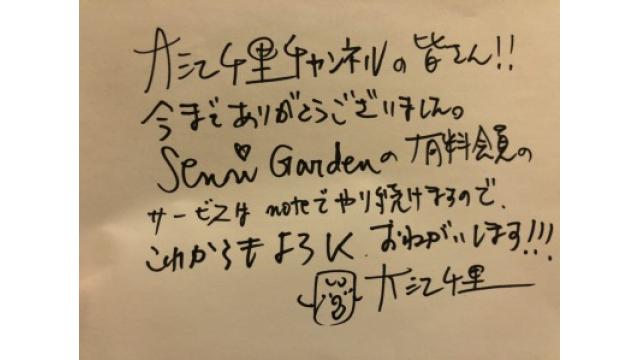 大江千里チャンネルの皆さん!!
今までありがとうございました。
Senri Gardenの有料会員の
サービスは noteでやり続けまるので、
これからもよろしくおねがいします!!!
大江千里